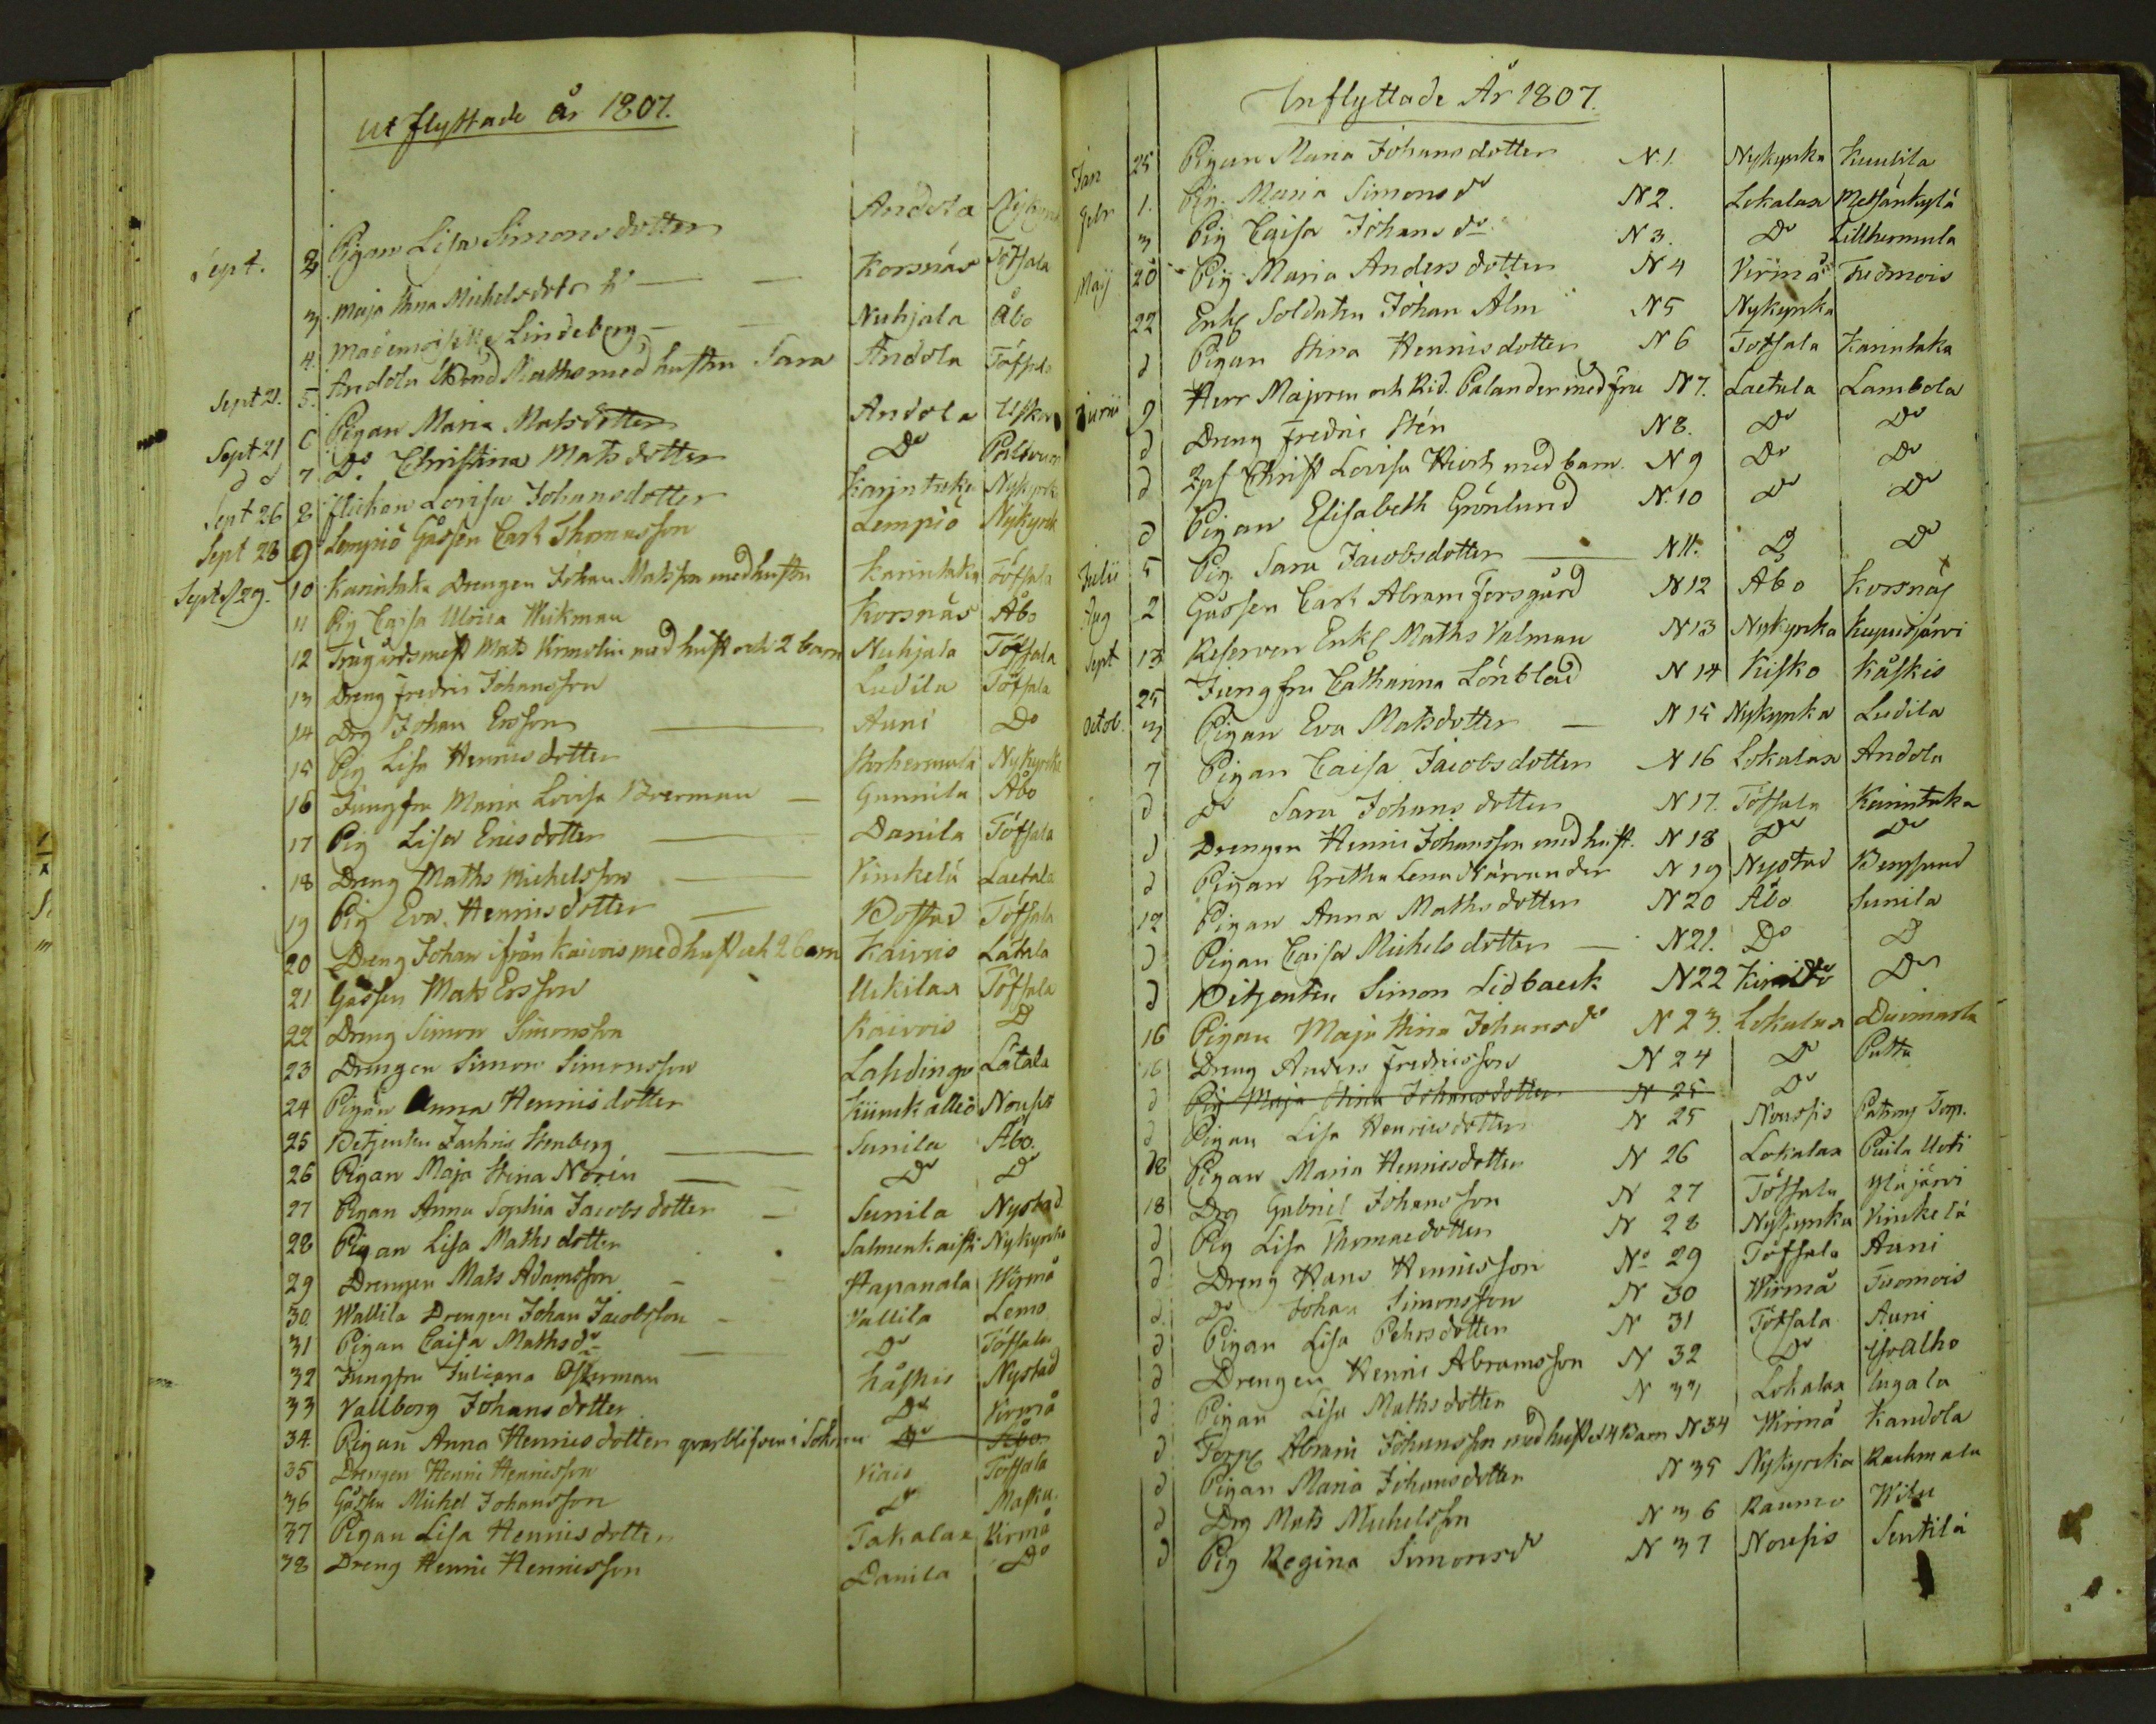 Utflyttade år 1807.
Sept. 2 Pigan Lisa Simonsdotter Andola Nykyrka
3. Maja Stina Michelsdoter Korsnäs Töfsala
4. Mademoiselle Lindeberg Nuhjala Åbo
Sept 21. 5. Andola Maths med hustru Sara Andola Töfsala
Sept 21 6 Pigan Maria Matsdotter Andola
d d 7 Do Christina Mats dotter Do
Sept 26 8 flickan Lovisa Johansdotter Karintaka Nykyrka
Sept 28 9 Lempiö Gåssen Carl Thomasson Lempiö Nykyrk
Sept 29. 10 Karintaka Drengen Johan Matsson med hustru Karintaka Töfsala
11 Pig Caisa Ulrica Wikman Korsnäs Åbo
12 Trägårdsmest Mats med hust och 2 barn Nuhjala Töfsala
13 Dreng fredric Johansson Ludila Töfsala
14 Drg Johan Ersson Auni Do
15 Pig Lisa Henricsdotter Storhermula Nykyrka
16 Jungfru Maria Lovisa Boerman Gunnila Åbo
17 Pig Lisa Ericsdotter Danila Töfsala
18 Dreng Maths Michelsson Vinkelä Laetala
19 Pig Eva Henricsdotter Töfsala
20 Dreng Johan ifrån Kaivois med hust och 2 barn Kaivois Lätala
21 Gåssen Mats Ersson Uckilax Töfsala
22 Dreng Simon Simonsson Kaivois D
23 Drengen Simon Simonsson Lahdingo Lätala
24 Pigan Anna Henricsdotter Nousis
25 Betjenten Zachris Stenberg Sunila Åbo.
26 Pigan Maja Stina Norén Do D
27 Pigan Anna Sophia Jacobsdotter Sunila Nystad
28 Pigan Lisa Mathsdotter Nykyrka
29 Drengen Mats Adamsson Hapanala Wirmå
30. Wallila Drengen Johan Jacobsson Vallila Lemo
31 Pigan Caisa Mathsdr Do Töfsala
32 Jungfru Juliana Osterman Kåskis Nystad
33 Vallborg Johansdotter Do Virmå
34. Pigan Anna Henricsdotter qvarblifven i Sokn Do Åbo
35 Drengen Henric Henricsson Viais Töfsala
36 Gåssen Michel Johansson D Masku
37 Pigan Lisa Henricsdotter Takalax Virmå
38 Dreng Henric Henricsson Danila Do
Inflyttade År 1807.
Jan 25 Pigan Maria Johansdotter N.1. Nykyrka Kuulila
Febr 1. Pig. Maria Simonsdr N 2. Lokalax Metsänkylä
3 Pig Caisa Johansdr. N 3. Do Lillhermula
Maij 20 Pig Maria Andersdotter N 4 Virmå Tuomois
22 Enkl Soldaten Johan Alm N 5 Nykyrka
d Pigan Stina Henricsdotter N 6 Töfsala Karintaka
Junii 9 Herr Majoren och Rid. Palander med fru N 7. Laetala Lambola
d Dreng Fredric Stén N 8. Do Do
d Christ Lovisa med barn. N 9 Do Do
d Pigan Elisabeth Grönlund N. 10 Do Do
Julii 5 Pig. Sara Jacobsdotter N 11. D Do
Aug 2 Gåssen Carl Abram Forsgård N 12 Åbo Korsnäs
Sept 13 Reserven Enkl Maths Valman N 13 Nykyrka
25 Jungfru Catharina Lönblad N 14 Kisko Kåskis
Octob. 3 Pigan Eva Matsdotter N 15 Nykyrka Ludila
7 Pigan Caisa Jacobsdotter N 16 Lokalax Andola
d Do Sara Johansdotter N 17. Töfsala Karintaka
d Drengen Henric Johansson med hust. N 18 Do Do
d Pigan Gretha Lena N 19 Nystad Bergsund
12 Pigan Anna Mathsdotter N 20 Åbo Sunila
d Pigan Caisa Michelsdotter N 21. Do D
d Betjenten Simon Lidbaeck N 22 Do
16 Pigan Maja Stina Johansdr N 23. Lokalax
16 Dreng Anders Fredricsson N 24 D Putta
d Pig Maja Stina Johansdotter N 25 Do
d Pigan Lisa Henricsdotter N 25 Nousis
18 Pigan Maria Henricsdotter N 26 Lokalax Puila Uoti
18 Drg Gabriel Johansson N 27 Töfsala Yläjärvi
d Pig Lisa Thomasdotter N 28 Nykyrka Vinkelä
d Dreng Hans Henricsson No 29 Töfsala Auni
d. Do Johan Simonsson N 30 Wirmå Tuomois
d Pigan Lisa Pehrsdotter N 31 Töfsala Auni
d Drengen Henric Abramsson N 32 Do Isoalho
d Pigan Lisa Mathsdotter N 33 Lokalax
d Torp Abram Johansson med hust et 4 Barn N 34 Wirmå Kandola
d Pigan Maria Johansdotter N 35 Nykyrcka Rachmala
d Drg Mats Michelsson N 36 Raumo
d Pig Regina Simonsdr N 37 Nousis Sentilä